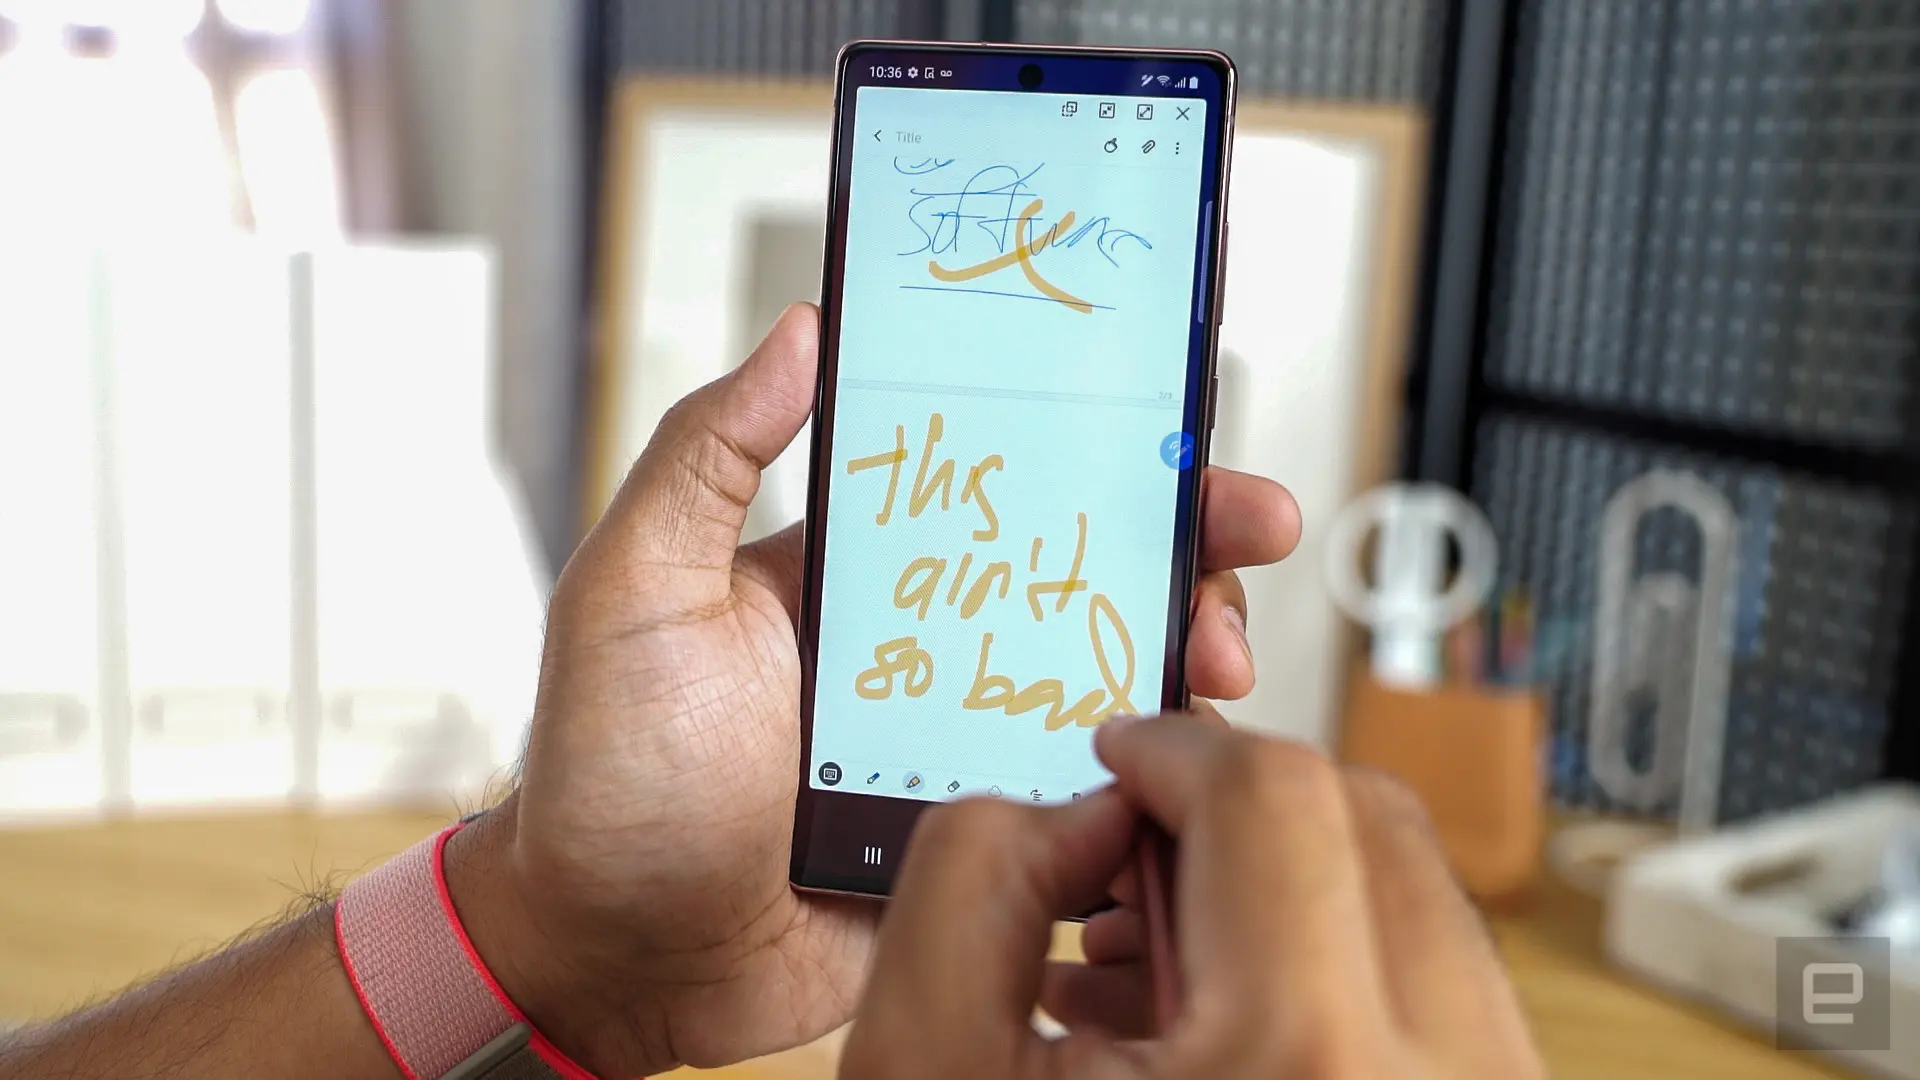 10:36
Title
software
2/3
this
ain't
so bad
e